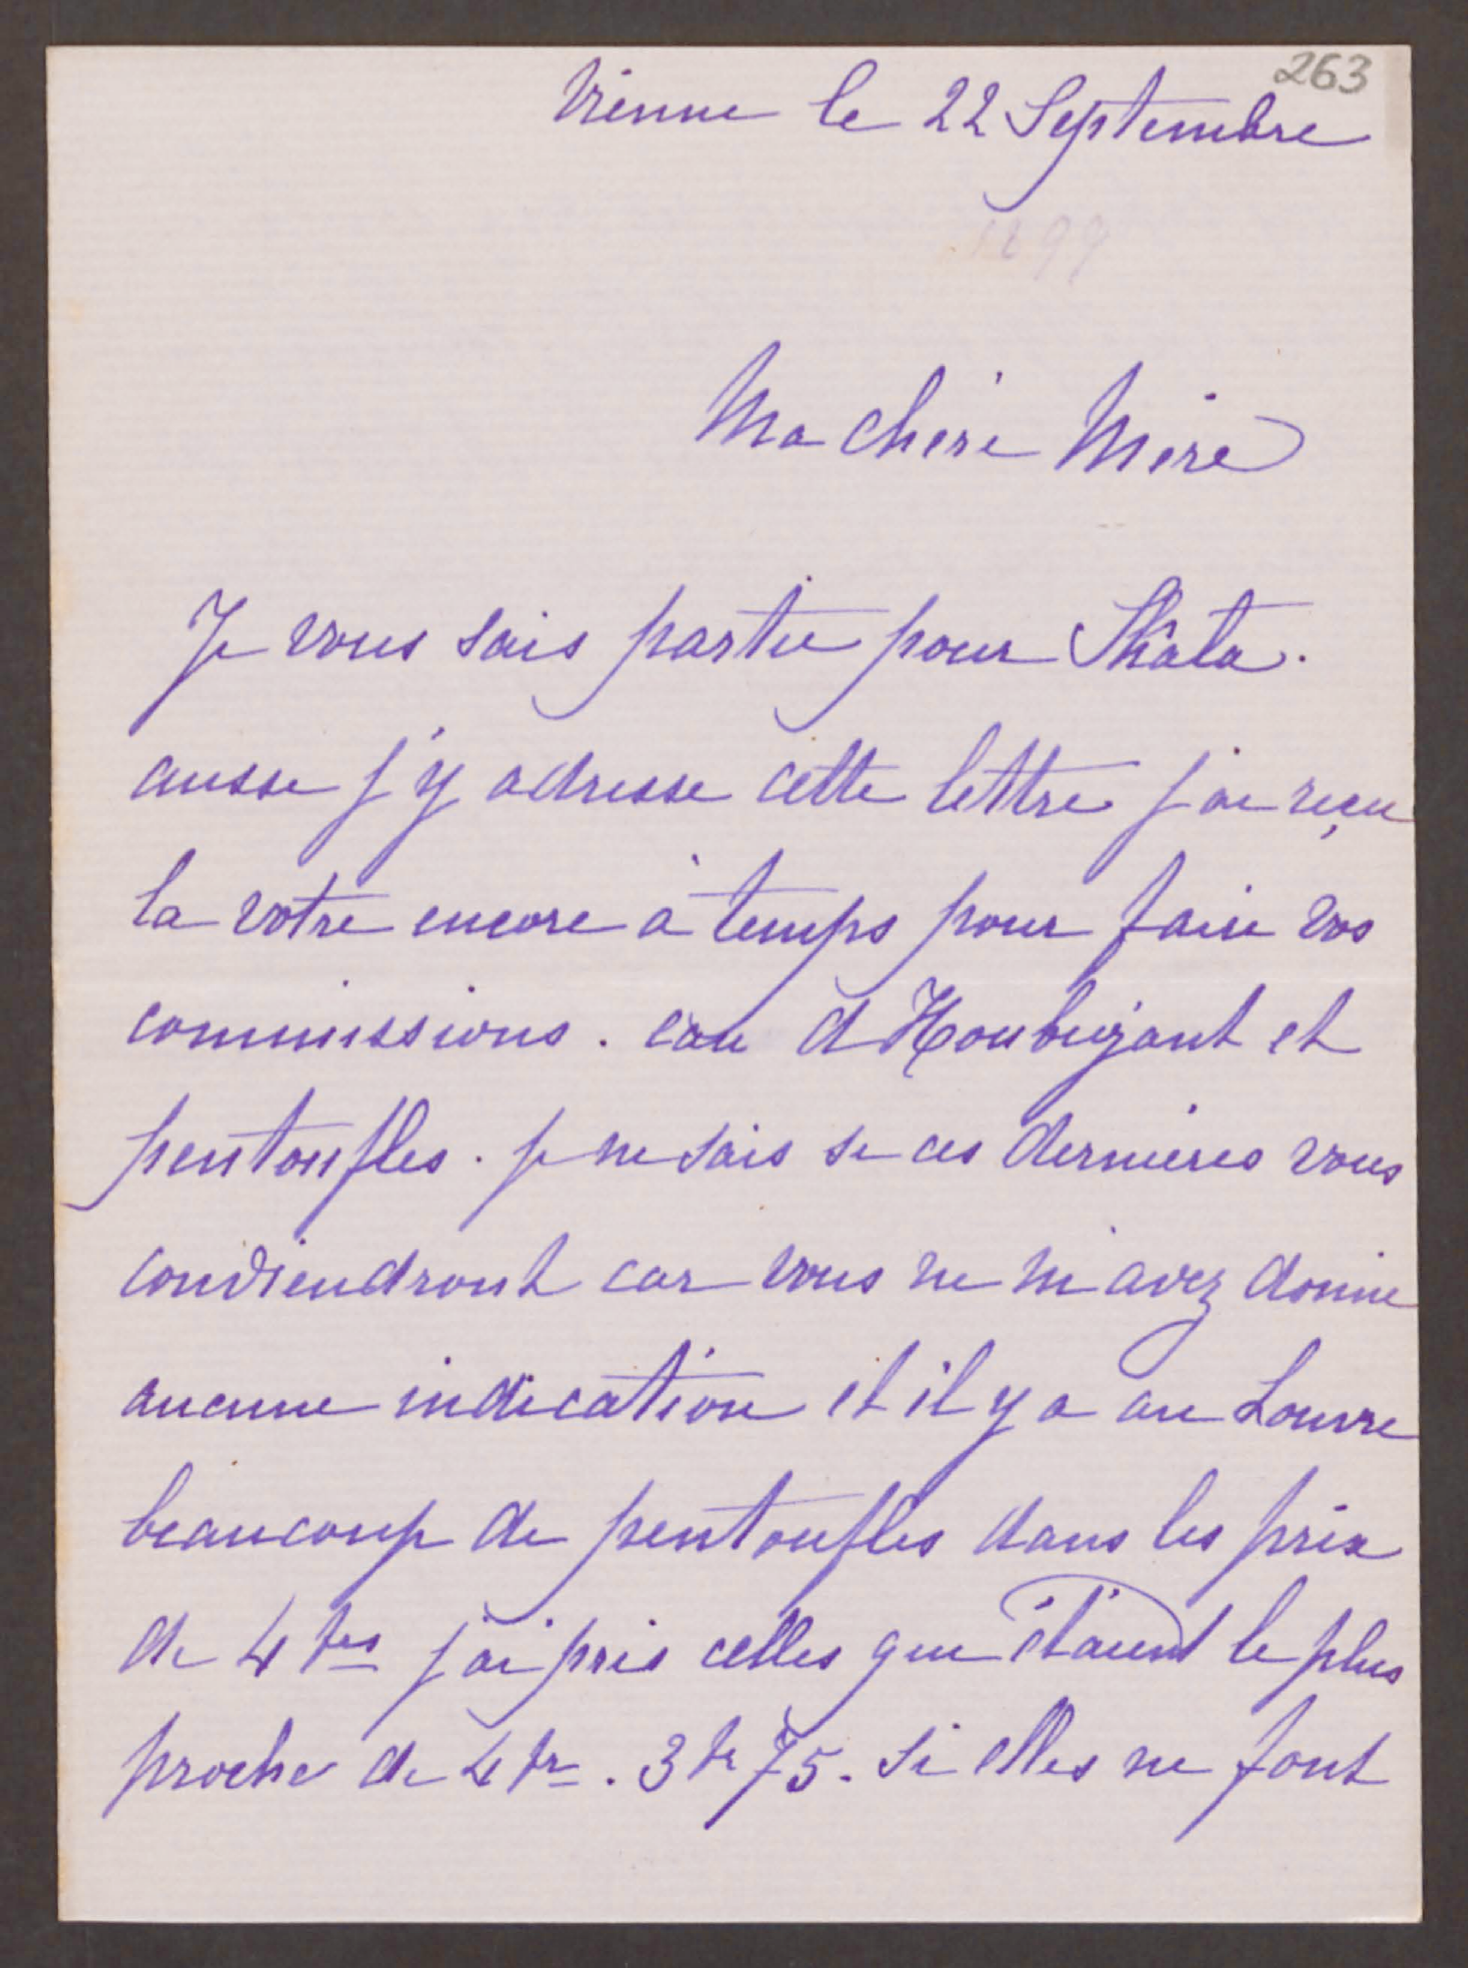 263
Vienne le 22 Septembre
Ma chère Mère
Je vous sais partie pour Skala.
aussi j'y adresse cette lettre j'ai reçu
la votre encore à temps pour faire vos
commissions. eau d Houbigant et
pentoufles. je ne sais si ces dernières vous
conviendront car vous ne m'avez donné
aucune indication et il y a au Louvre
beaucoup de pentoufles dans les prix
de 4 frs j'ai pris celles qui étaient le plus
proche de 4 fr. 3 fr 75. si elles ne font